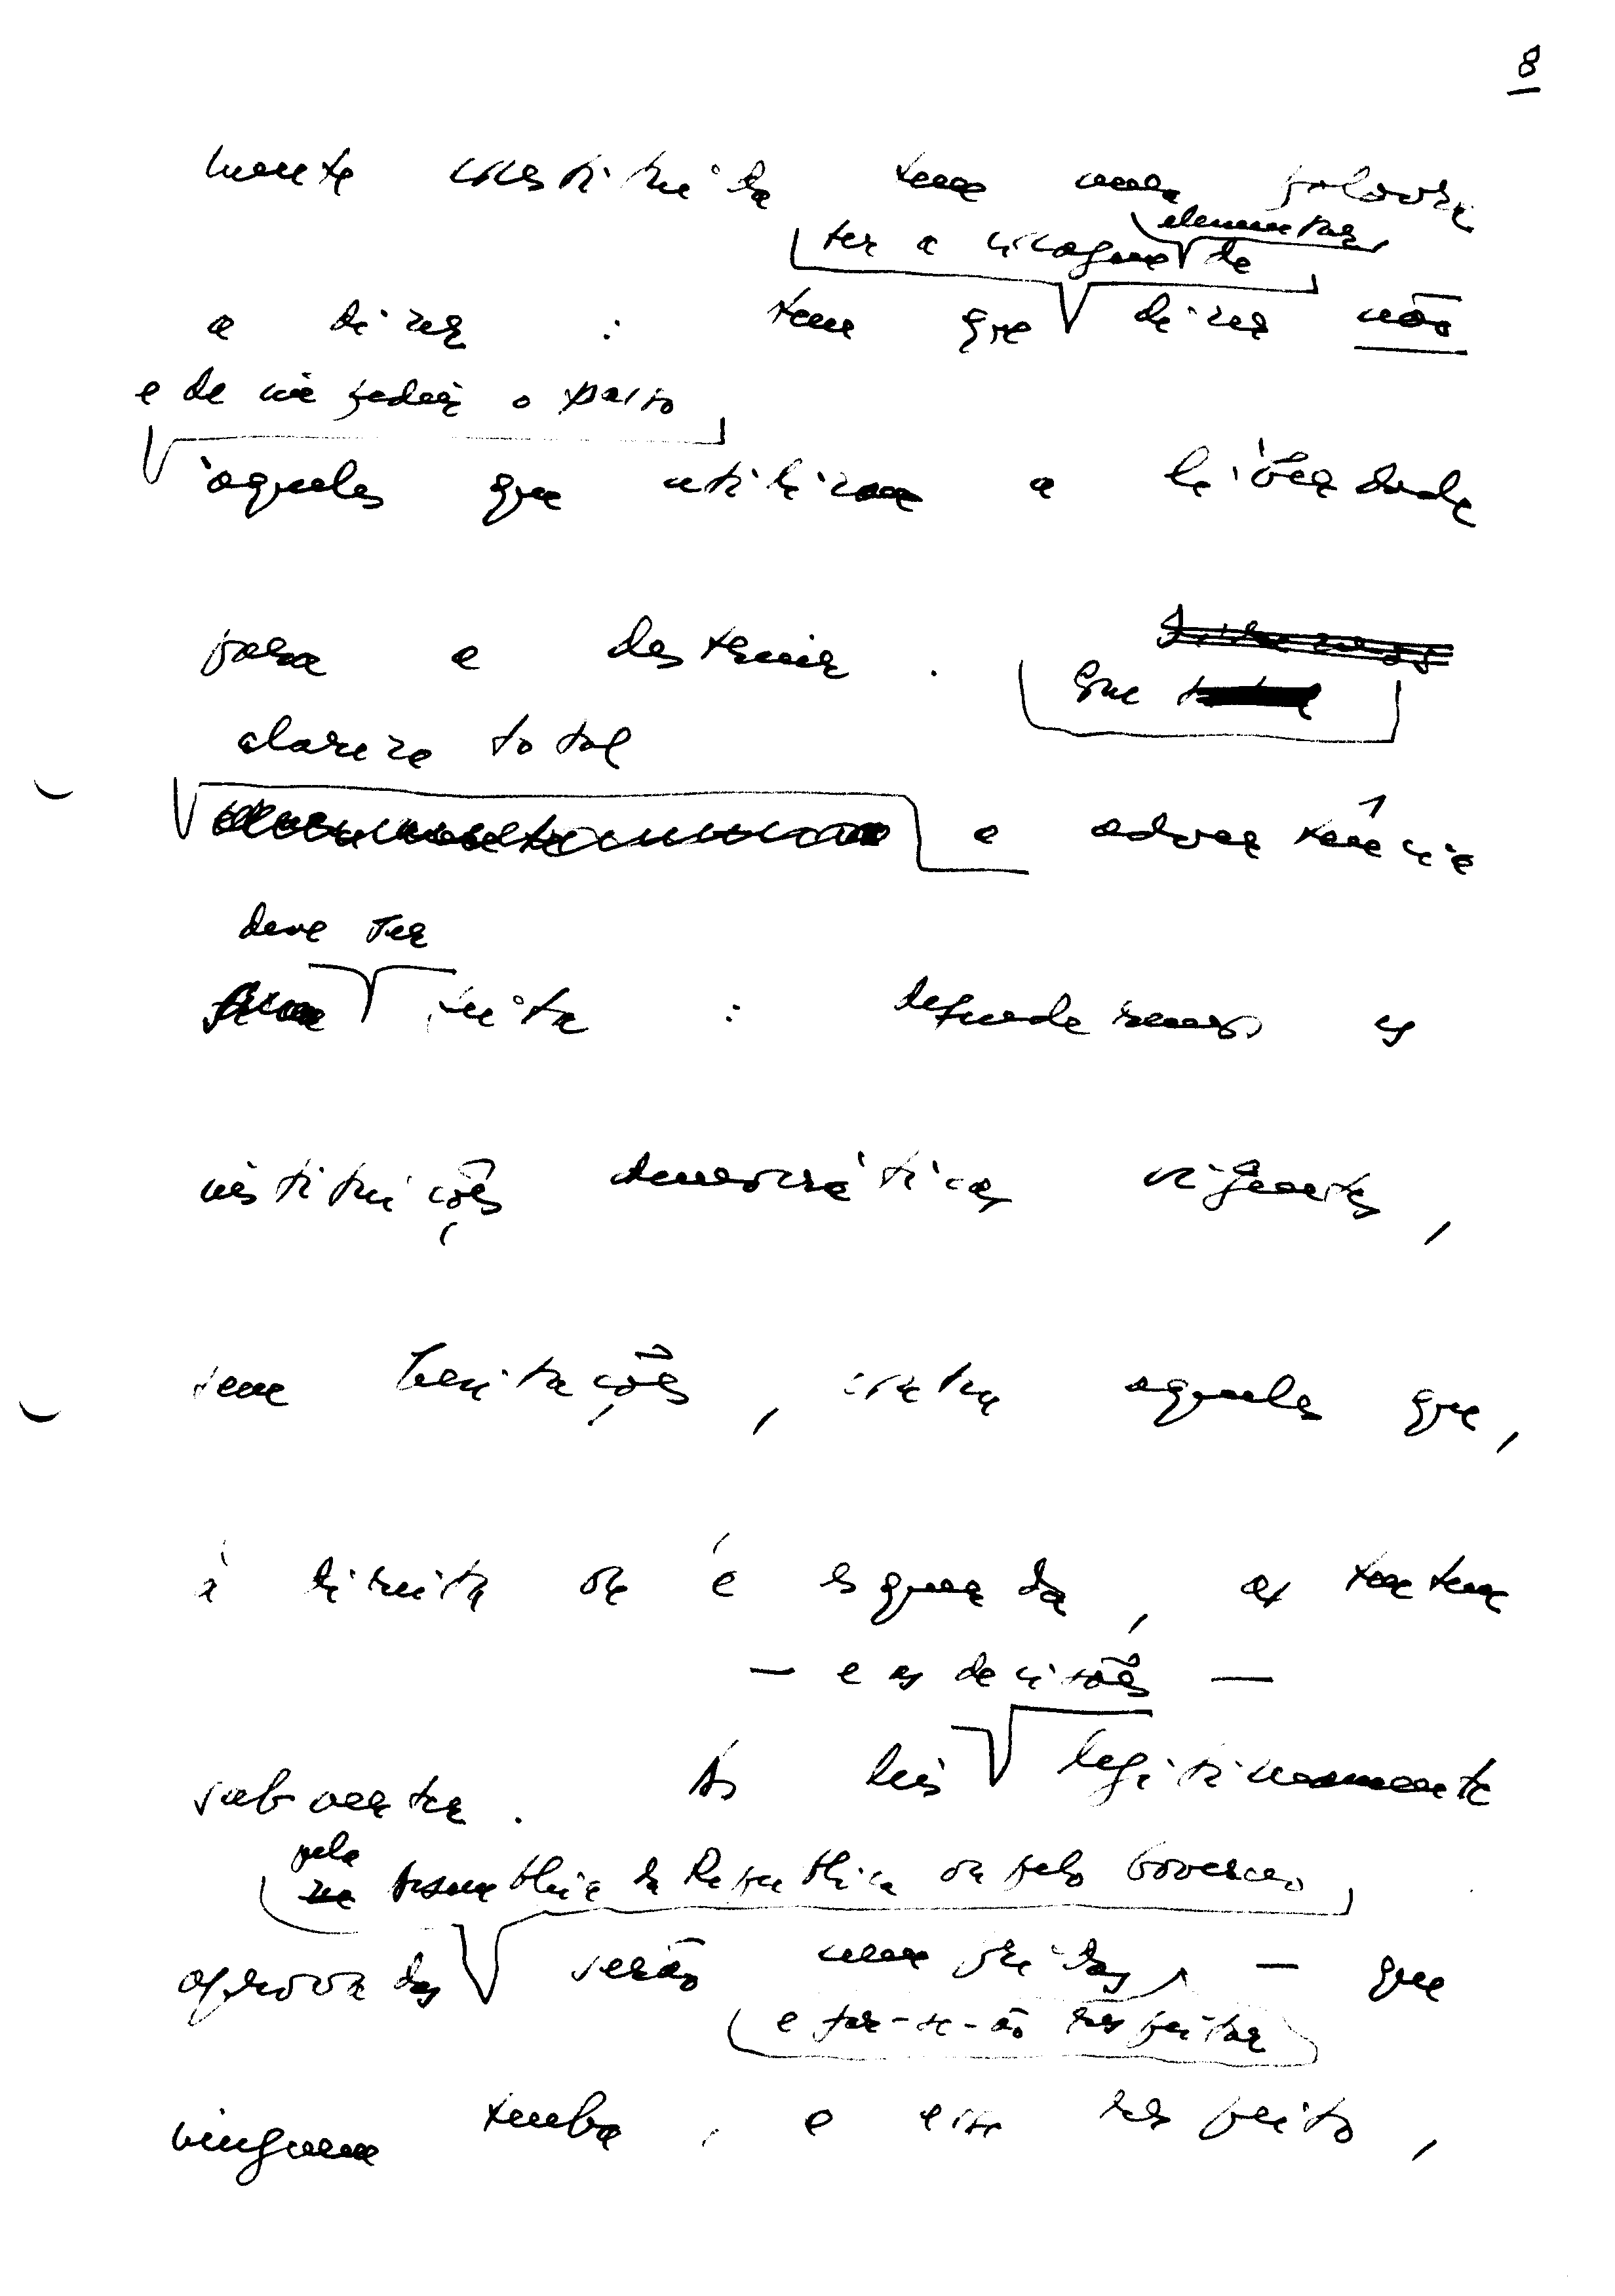 8
mente constituída tem uma palavra
elementar
ter a coragem de
a dizer : tem que dizer não
e de impedir o passo
àqueles que utilizam a liberdade
para a destruir .
Que
clareza total
a advertência
deve ser
feita : defenderemos as
instituições democráticas vigentes ,
sem hesitações , contra aqueles que ,
à direita ou à esquerda , as tentem
— e as decisões —
subverter . As leis legitimamente
pela
Assembleia da República ou pelo Governo
aprovadas serão cumpridas , — que
e far-se-ão respeitar
ninguem tenha , a esse respeito ,